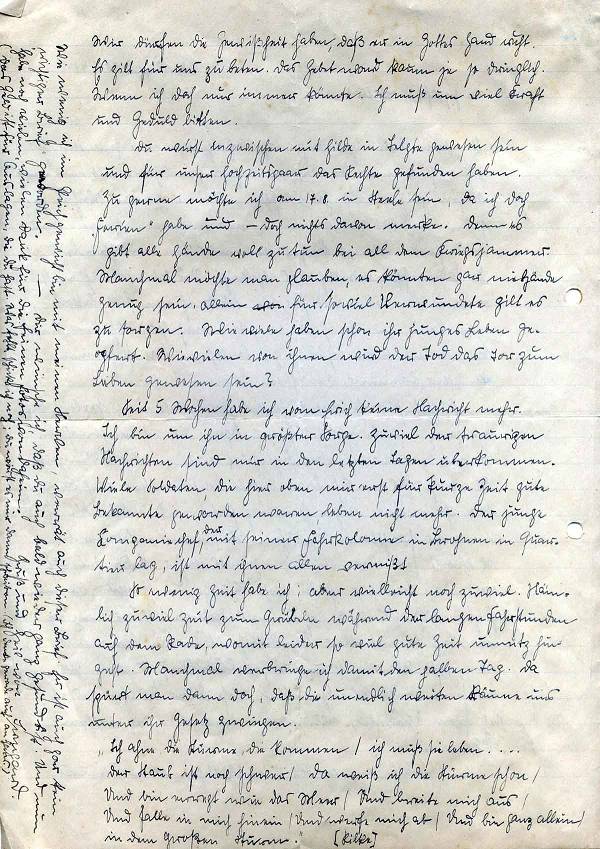 Wir dürfen die Gewißheit haben, daß er in Gottes Hand ruht.
Es gilt für uns zu beten. Das Gebet ward kaum je so dringlich.
Wenn ich doch nur immer könnte. Ich muß um viel Kraft
und Geduld bitten.
Du wirst inzwischen mit Hilde in Telgte gewesen sein
und für unser Hochzeitspaar das Rechte gefunden haben.
Zu gerne möchte ich am 17.8. in Steele sein, da ich doch
"Ferien" habe und – doch nichts davon merke. Denn es
gibt alle Hände voll zu tun bei all dem Kriegsjammer.
Manchmal möchte man glauben, es könnten gar nicht Hände
genug sein. Allein für soviel Verwundete gilt es
zu sorgen. Wie viele haben schon ihr junges Leben ge-
opfert. Wievielen von ihnen wird der Tod das Tor zum
Leben gewesen sein?
Seit 5 Wochen habe ich von Erich keine Nachricht mehr.
Ich bin um ihn in größter Sorge. Zuviel der traurigen
Nachrichten sind mir in den letzten Tagen überkommen.
Viele Soldaten, die hier oben mir erst für kurze Zeit gute
Bekannte geworden waren leben nicht mehr. Der junge
Kompaniechef, der mit seiner Fahrkolonne in in Quar-
tier lag, ist mit ihnen allen vermißt.
So wenig Zeit habe ich; aber vielleicht noch zuviel. Näm-
lich zuviel Zeit zum Grübeln während der langen Fahrstunden
auf dem Rade, womit leider so viel gute Zeit unnütz hin-
geht. Manchmal verbringe ich damit den halben Tag. Da
spürt man dann doch, daß die unendlich weiten Räume uns
unter ihr Gesetz zwingen.
"Ich ahne die Stürme die kommen / ich muß sie leben . . . .
Der Staub ist noch schwer / Da weiß ich die Stürme schon /
Und bin erregt wie das Meer / Und breite mich aus /
Und falle in mich hinein / Und werfe mich ab / Und bin ganz allein /
in dem großen Sturm." [Rilke]
Wie wenig ich im Gleichgewicht bin mit meinen Nerven verrät auch dieser Brief. Er ist auch gar kein
richtiger Brief geworden. — Dir wünsche ich, daß Du auch bald wieder ganz gesund bist. Und nun
habe noch vielen Dank für die
Das Geld ist für Auslagen, die Du